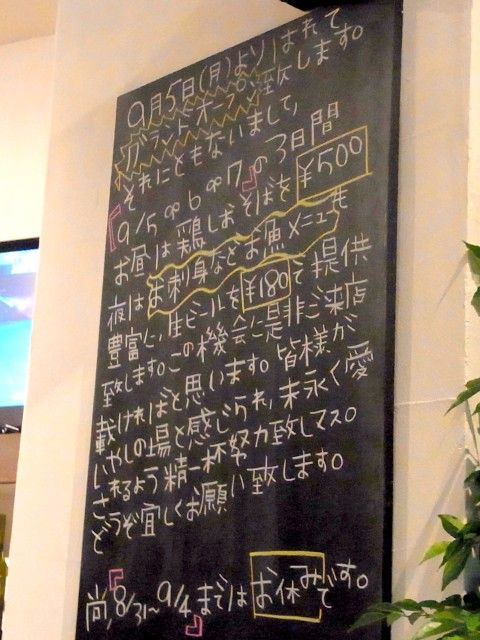 9月5日(月)よりはれて
グランドオープン致します。
それにともないまして、
『9/5 9/6 9/7』の3日間
お昼は鶏しおそばを¥500
夜はお刺身などお魚メニューも
豊富に、生ビールを¥180で提供
致します。この機会に是非ご来店
載ければと思います。皆様が
いやしの場と感じられ、末永く愛
されるよう精一杯努力致しマス。
どうぞ宜しくお願い致します。
尚、『8/31~9/4』まではお休みです。